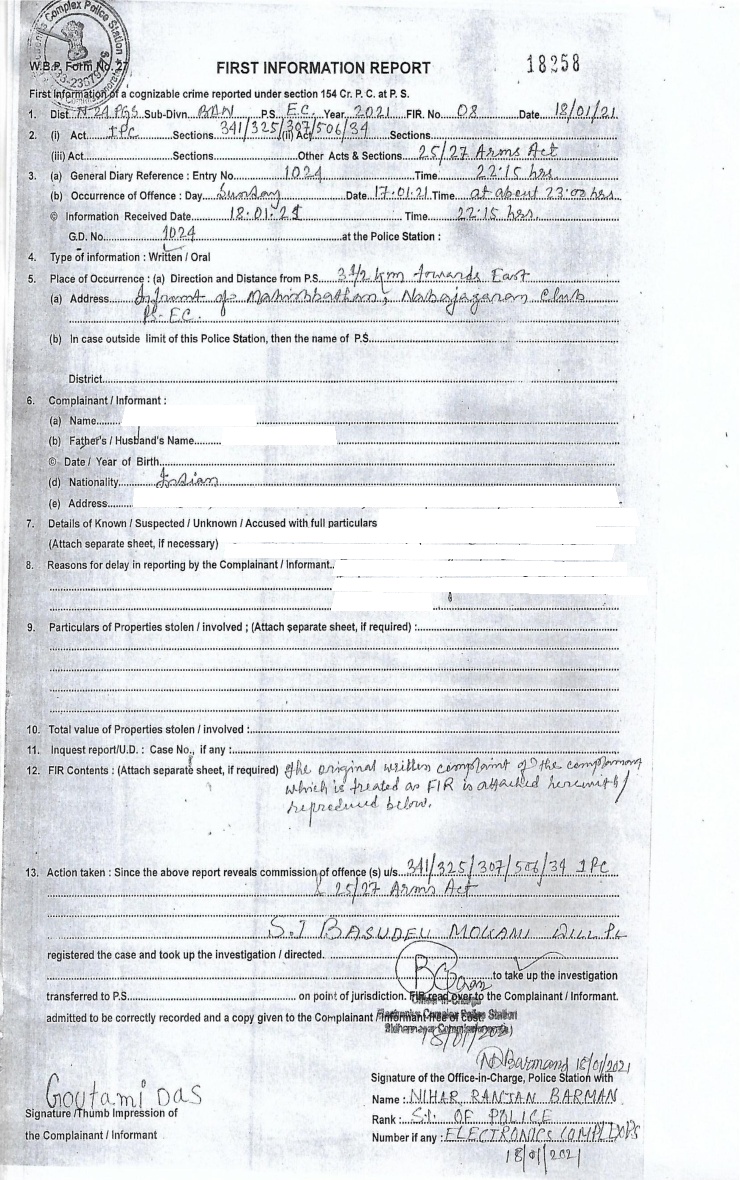 Complex Police Station
W.B.P. Form No. 27
FIRST INFORMATION REPORT
18258
First Information of a cognizable crime reported under section 154 Cr. P. C. at P. S.
1. Dist. N-24 PGS Sub-Divn. BAN P.S. E.C. Year 2021 FIR. No 08 Date 18/01/21
2. (i) Act IPC Sections 341/325/307/506/34 (ii) Act Sections
(iii) Act Sections Other Acts & Sections 25/27 Arms Act
3. (a) General Diary Reference : Entry No. 1024 Time 22:15 hrs
(b) Occurrence of Offence : Day Sunday Date 17.01.21 Time at about 23:00 hrs.
© Information Received Date 18.01.21 Time 22:15 hrs.
G.D. No. 1024 at the Police Station :
4. Type of information : Written / Oral
5. Place of Occurrence : (a) Direction and Distance from P.S. 3 1/2 km towards East
(a) Address Infront of Nabajagaran Club
PS- EC.
(b) In case outside limit of this Police Station, then the name of P.S.
District
6. Complainant / Informant :
(a) Name
(b) Father's / Husband's Name
© Date / Year of Birth
(d) Nationality Indian
(e) Address
7. Details of Known / Suspected / Unknown / Accused with full particulars
(Attach separate sheet, if necessary)
8. Reasons for delay in reporting by the Complainant / Informant
9. Particulars of Properties stolen / involved ; (Attach separate sheet, if required) :
10. Total value of Properties stolen / involved :
11. Inquest report/U.D. : Case No., if any :
12. FIR Contents : (Attach separate sheet, if required) The original written complaint of the complainant
which is treated as FIR is attached herewith/
reproduced below.
13. Action taken : Since the above report reveals commission of offence (s) u/s. 341/325/307/506/34 IPC
& 25/27 Arms Act
S.I BASUDEV MOLLANI WILL Pl
registered the case and took up the investigation / directed.
to take up the investigation
transferred to P.S. on point of jurisdiction. FIR read over to the Complainant / Informant.
admitted to be correctly recorded and a copy given to the Complainant / Informant free of cost.
Officer-in-Charge
Electronics Complex Police Station
Bidhannagar Commissionerate
18/01/2021
NRBarman 18/01/2021
Goutami Das
Signature of the Office-in-Charge, Police Station with
Name : NIHAR RANJAN BARMAN
Signature /Thumb Impression of
Rank : S.I. OF POLICE
the Complainant / Informant
Number if any : ELECTRONICS COMPLEX PS
18/01/2021